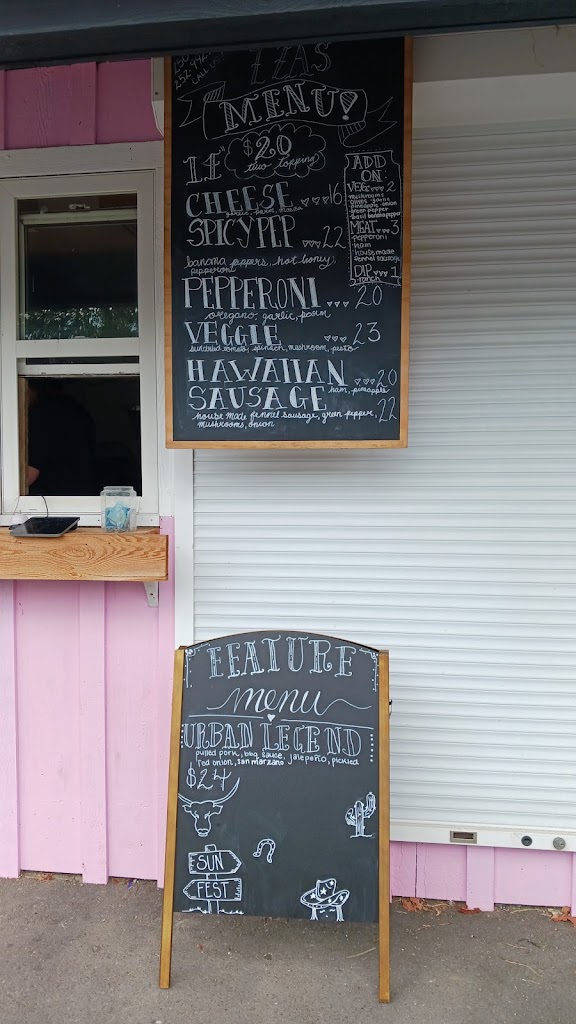 ZZAS
MENU!
11" $20
two topping
CHEESE 16
garlic, parm, 
SPICY PEP 22
banana peppers, hot honey,
pepperoni
PEPPERONI 20
oregano, garlic, parm
VEGGIE 23
sundried tomato, spinach, mushroom, pesto
HAWAIIAN 20
ham, pineapple
SAUSAGE 22
house made fennel sausage, green pepper,
mushrooms, onion
ADD
ON
VEG 2
mushrooms
olives garlic
pineapple onion
green pepper
basil banana pepper
MEAT 3
pepperoni
ham
house made
fennel sausage
DIP 1
ranch
FEATURE
menu
URBAN LEGEND
pulled pork, bbq sauce, jalepeño, pickled
red onion, san marzano
$24
SUN
FEST